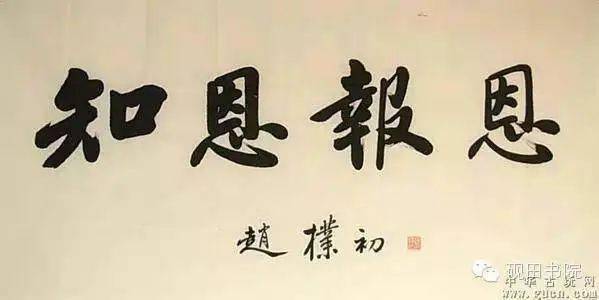 知恩報恩
趙樸初
砚田书院
中华古玩网
www.gucn.com